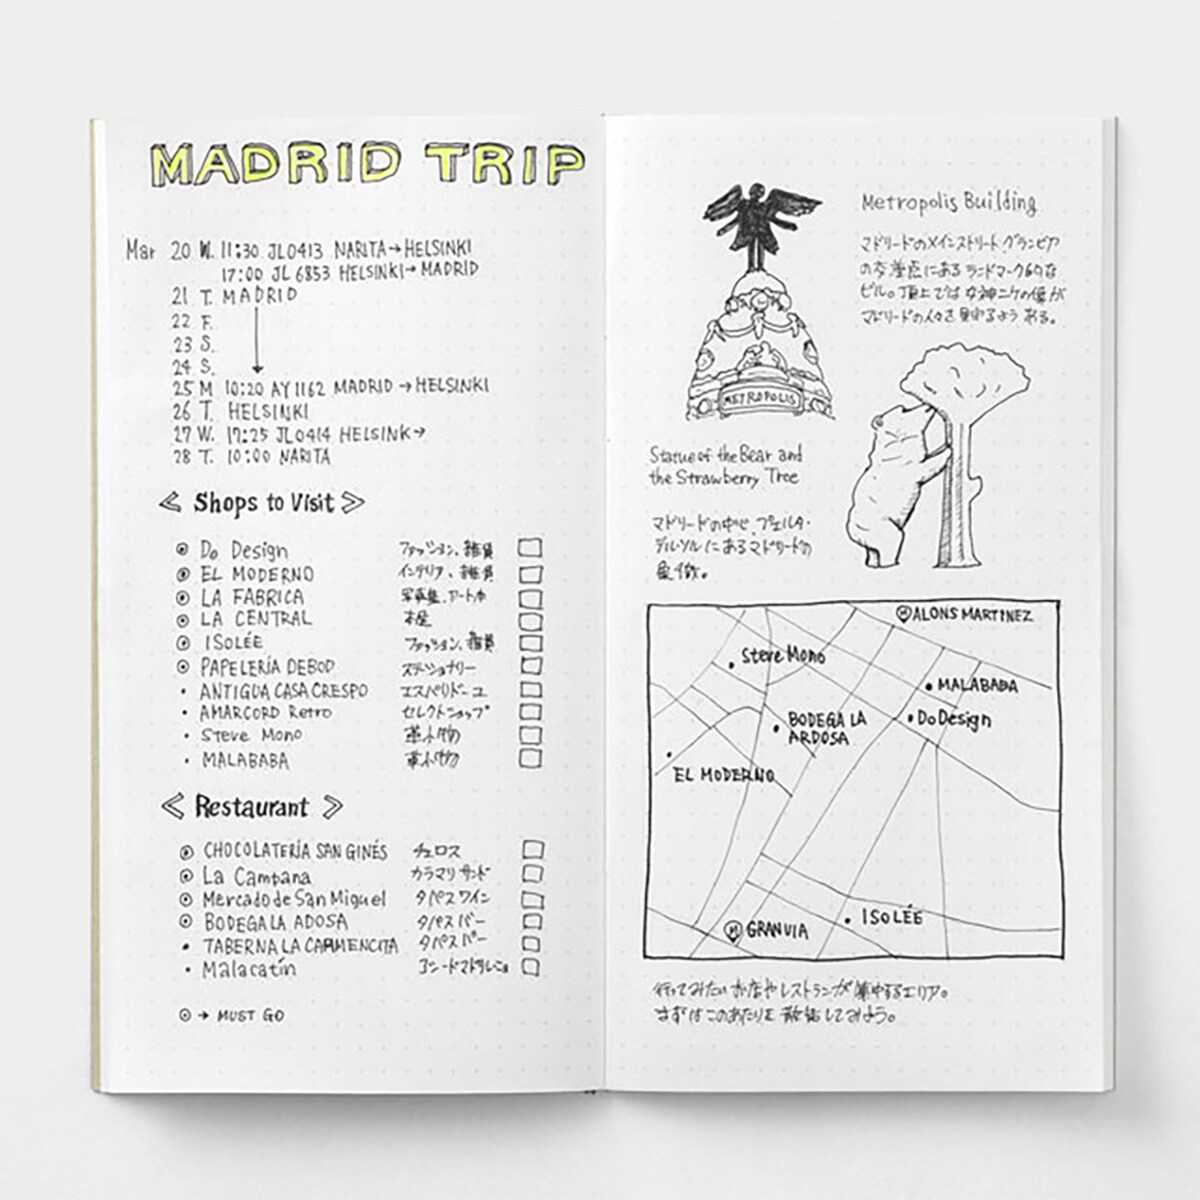 MADRID TRIP
Mar 20 W. 11:30 JL0413 NARITA→HELSINKI
17:00 JL6853 HELSINKI→MADRID
21 T. MADRID
22 F.
23 S.
24 S.
25 M 10:20 AY1162 MADRID→HELSINKI
26 T. HELSINKI
27 W. 17:25 JL0414 HELSINK→
28 T. 10:00 NARITA
≪ Shops to Visit ≫
Do Design ファッション、雑貨
EL MODERNO インテリア、雑貨
LA FABRICA 写真集、アート本
LA CENTRAL 本屋
ISOLÉE ファッション、雑貨
PAPELERÍA DEBOD ステーショナリー
ANTIGUA CASA CRESPO エスパドリーユ
AMARCORD Retro セレクトショップ
Steve Mono 革小物
MALABABA 革小物
≪ Restaurant ≫
CHOCOLATERÍA SAN GINÉS チュロス
La Campana カラマリサンド
Mercado de San Miguel タパス ワイン
BODEGA LA ADOSA タパス バー
TABERNA LA CARMENCITA タパス バー
Malacatín
⊙ → MUST GO
Metropolis Building
マドリードのメインストリート、グランビア
の交差点にあるランドマーク的な
ビル。頂上では女神ニケの像が
マドリードの人々を見守るようある。
METROPOLIS
Statue of the Bear and
the Strawberry Tree
マドリードの中心、プエルタ・
デル・ソルにあるマドリードの
象徴。
M ALONS MARTINEZ
Steve Mono
MALABABA
BODEGA LA
ARDOSA
Do Design
EL MODERNO
ISOLÉE
M GRANVIA
行ってみたいお店やレストランが集中するエリア。
まずはこのあたりを散策してみよう。